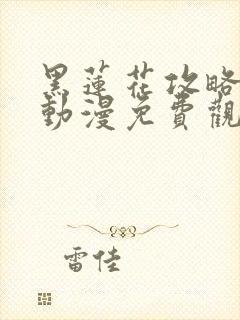 黑蓮花攻略
動漫免費觀
雷佳